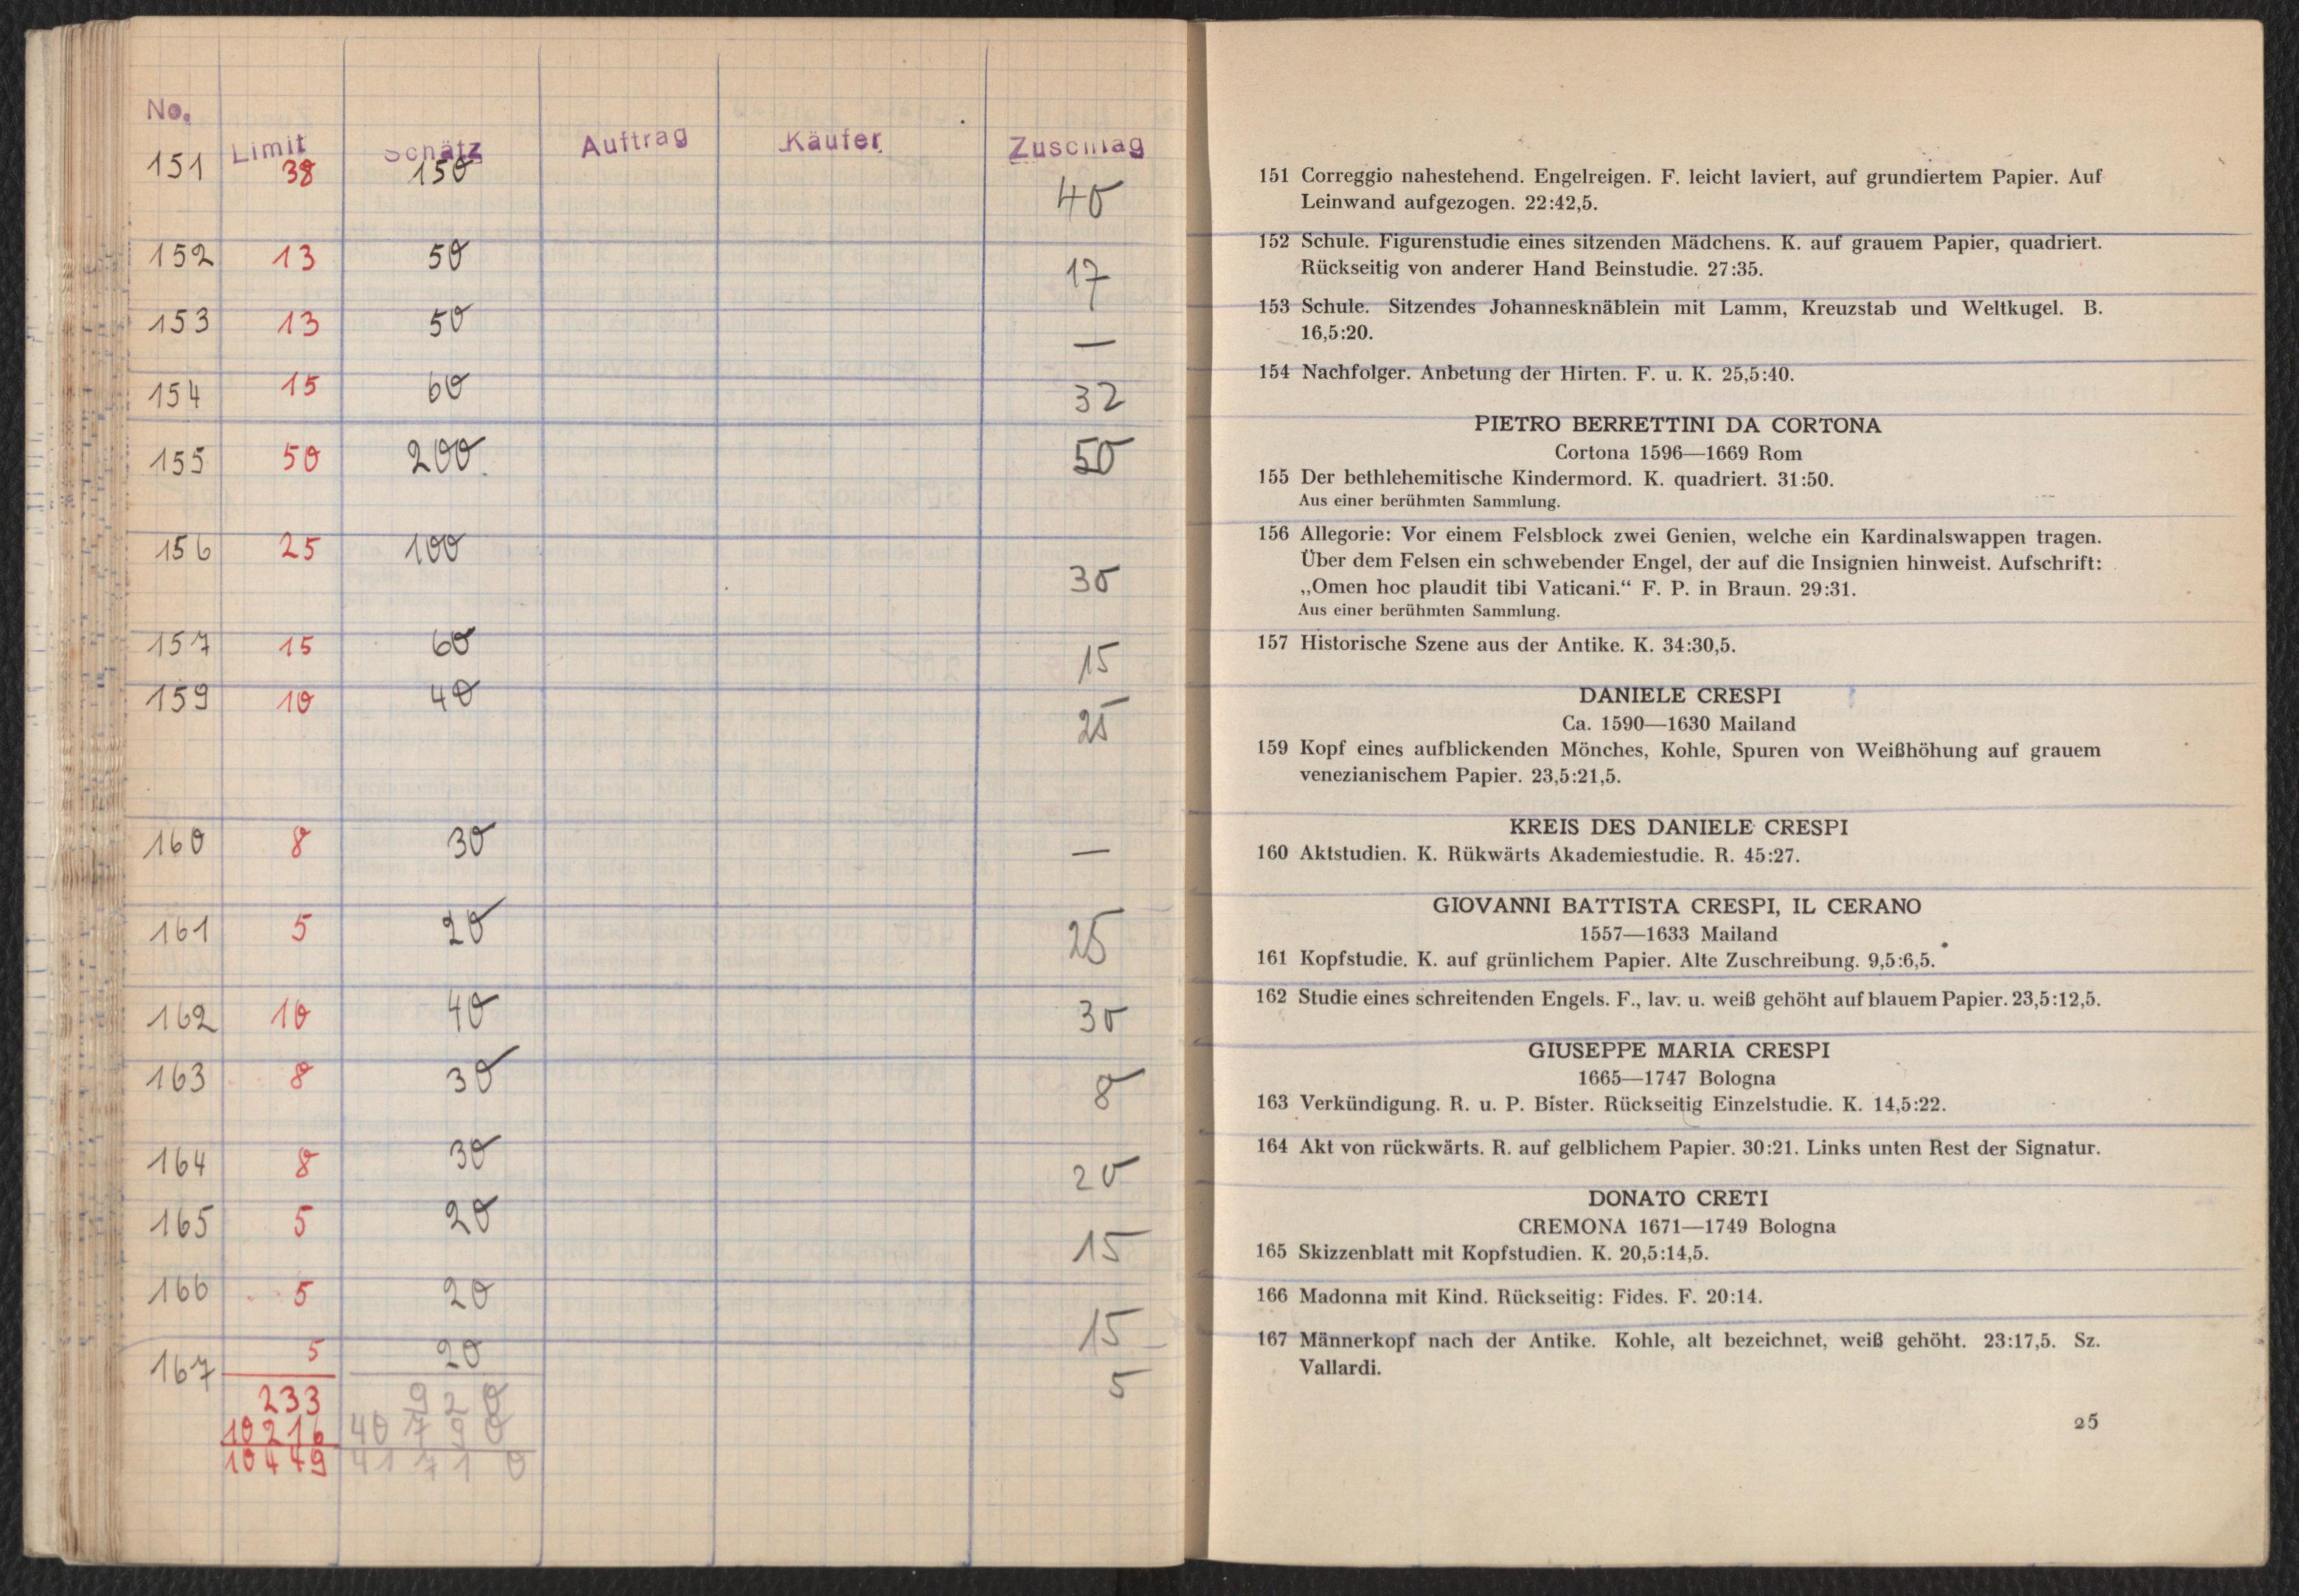 No. Limit Schätz Auftrag Käufer Zuschlag
151 38 150 40
152 13 50 17
153 13 50 —
154 15 60 32
155 50 200. 50
156 25 100 30
157 15 60 15
159 10 40 25
160 8 30 —
161 5 20 25
162 10 40 30
163 8 30 8
164 8 30 20
165 5 20 15
166 5 20 15
167 5 20 5
233 920
10216 40790
10449 41710
151 Correggio nahestehend. Engelreigen. F. leicht laviert, auf grundiertem Papier. Auf
Leinwand aufgezogen. 22:42,5.
152 Schule. Figurenstudie eines sitzenden Mädchens. K. auf grauem Papier, quadriert.
Rückseitig von anderer Hand Beinstudie. 27:35.
153 Schule. Sitzendes Johannesknäblein mit Lamm, Kreuzstab und Weltkugel. B.
16,5:20.
154 Nachfolger. Anbetung der Hirten. F. u. K. 25,5:40.
PIETRO BERRETTINI DA CORTONA
Cortona 1596—1669 Rom
155 Der bethlehemitische Kindermord. K. quadriert. 31:50.
Aus einer berühmten Sammlung.
156 Allegorie: Vor einem Felsblock zwei Genien, welche ein Kardinalswappen tragen.
Über dem Felsen ein schwebender Engel, der auf die Insignien hinweist. Aufschrift:
„Omen hoc plaudit tibi Vaticani.“ F. P. in Braun. 29:31.
Aus einer berühmten Sammlung.
157 Historische Szene aus der Antike. K. 34:30,5.
DANIELE CRESPI
Ca. 1590—1630 Mailand
159 Kopf eines aufblickenden Mönches, Kohle, Spuren von Weißhöhung auf grauem
venezianischem Papier. 23,5:21,5.
KREIS DES DANIELE CRESPI
160 Aktstudien. K. Rükwärts Akademiestudie. R. 45:27.
GIOVANNI BATTISTA CRESPI, IL CERANO
1557—1633 Mailand
161 Kopfstudie. K. auf grünlichem Papier. Alte Zuschreibung. 9,5:6,5.
162 Studie eines schreitenden Engels. F., lav. u. weiß gehöht auf blauem Papier. 23,5:12,5.
GIUSEPPE MARIA CRESPI
1665—1747 Bologna
163 Verkündigung. R. u. P. Bister. Rückseitig Einzelstudie. K. 14,5:22.
164 Akt von rückwärts. R. auf gelblichem Papier. 30:21. Links unten Rest der Signatur.
DONATO CRETI
CREMONA 1671—1749 Bologna
165 Skizzenblatt mit Kopfstudien. K. 20,5:14,5.
166 Madonna mit Kind. Rückseitig: Fides. F. 20:14.
167 Männerkopf nach der Antike. Kohle, alt bezeichnet, weiß gehöht. 23:17,5. Sz.
Vallardi.
25